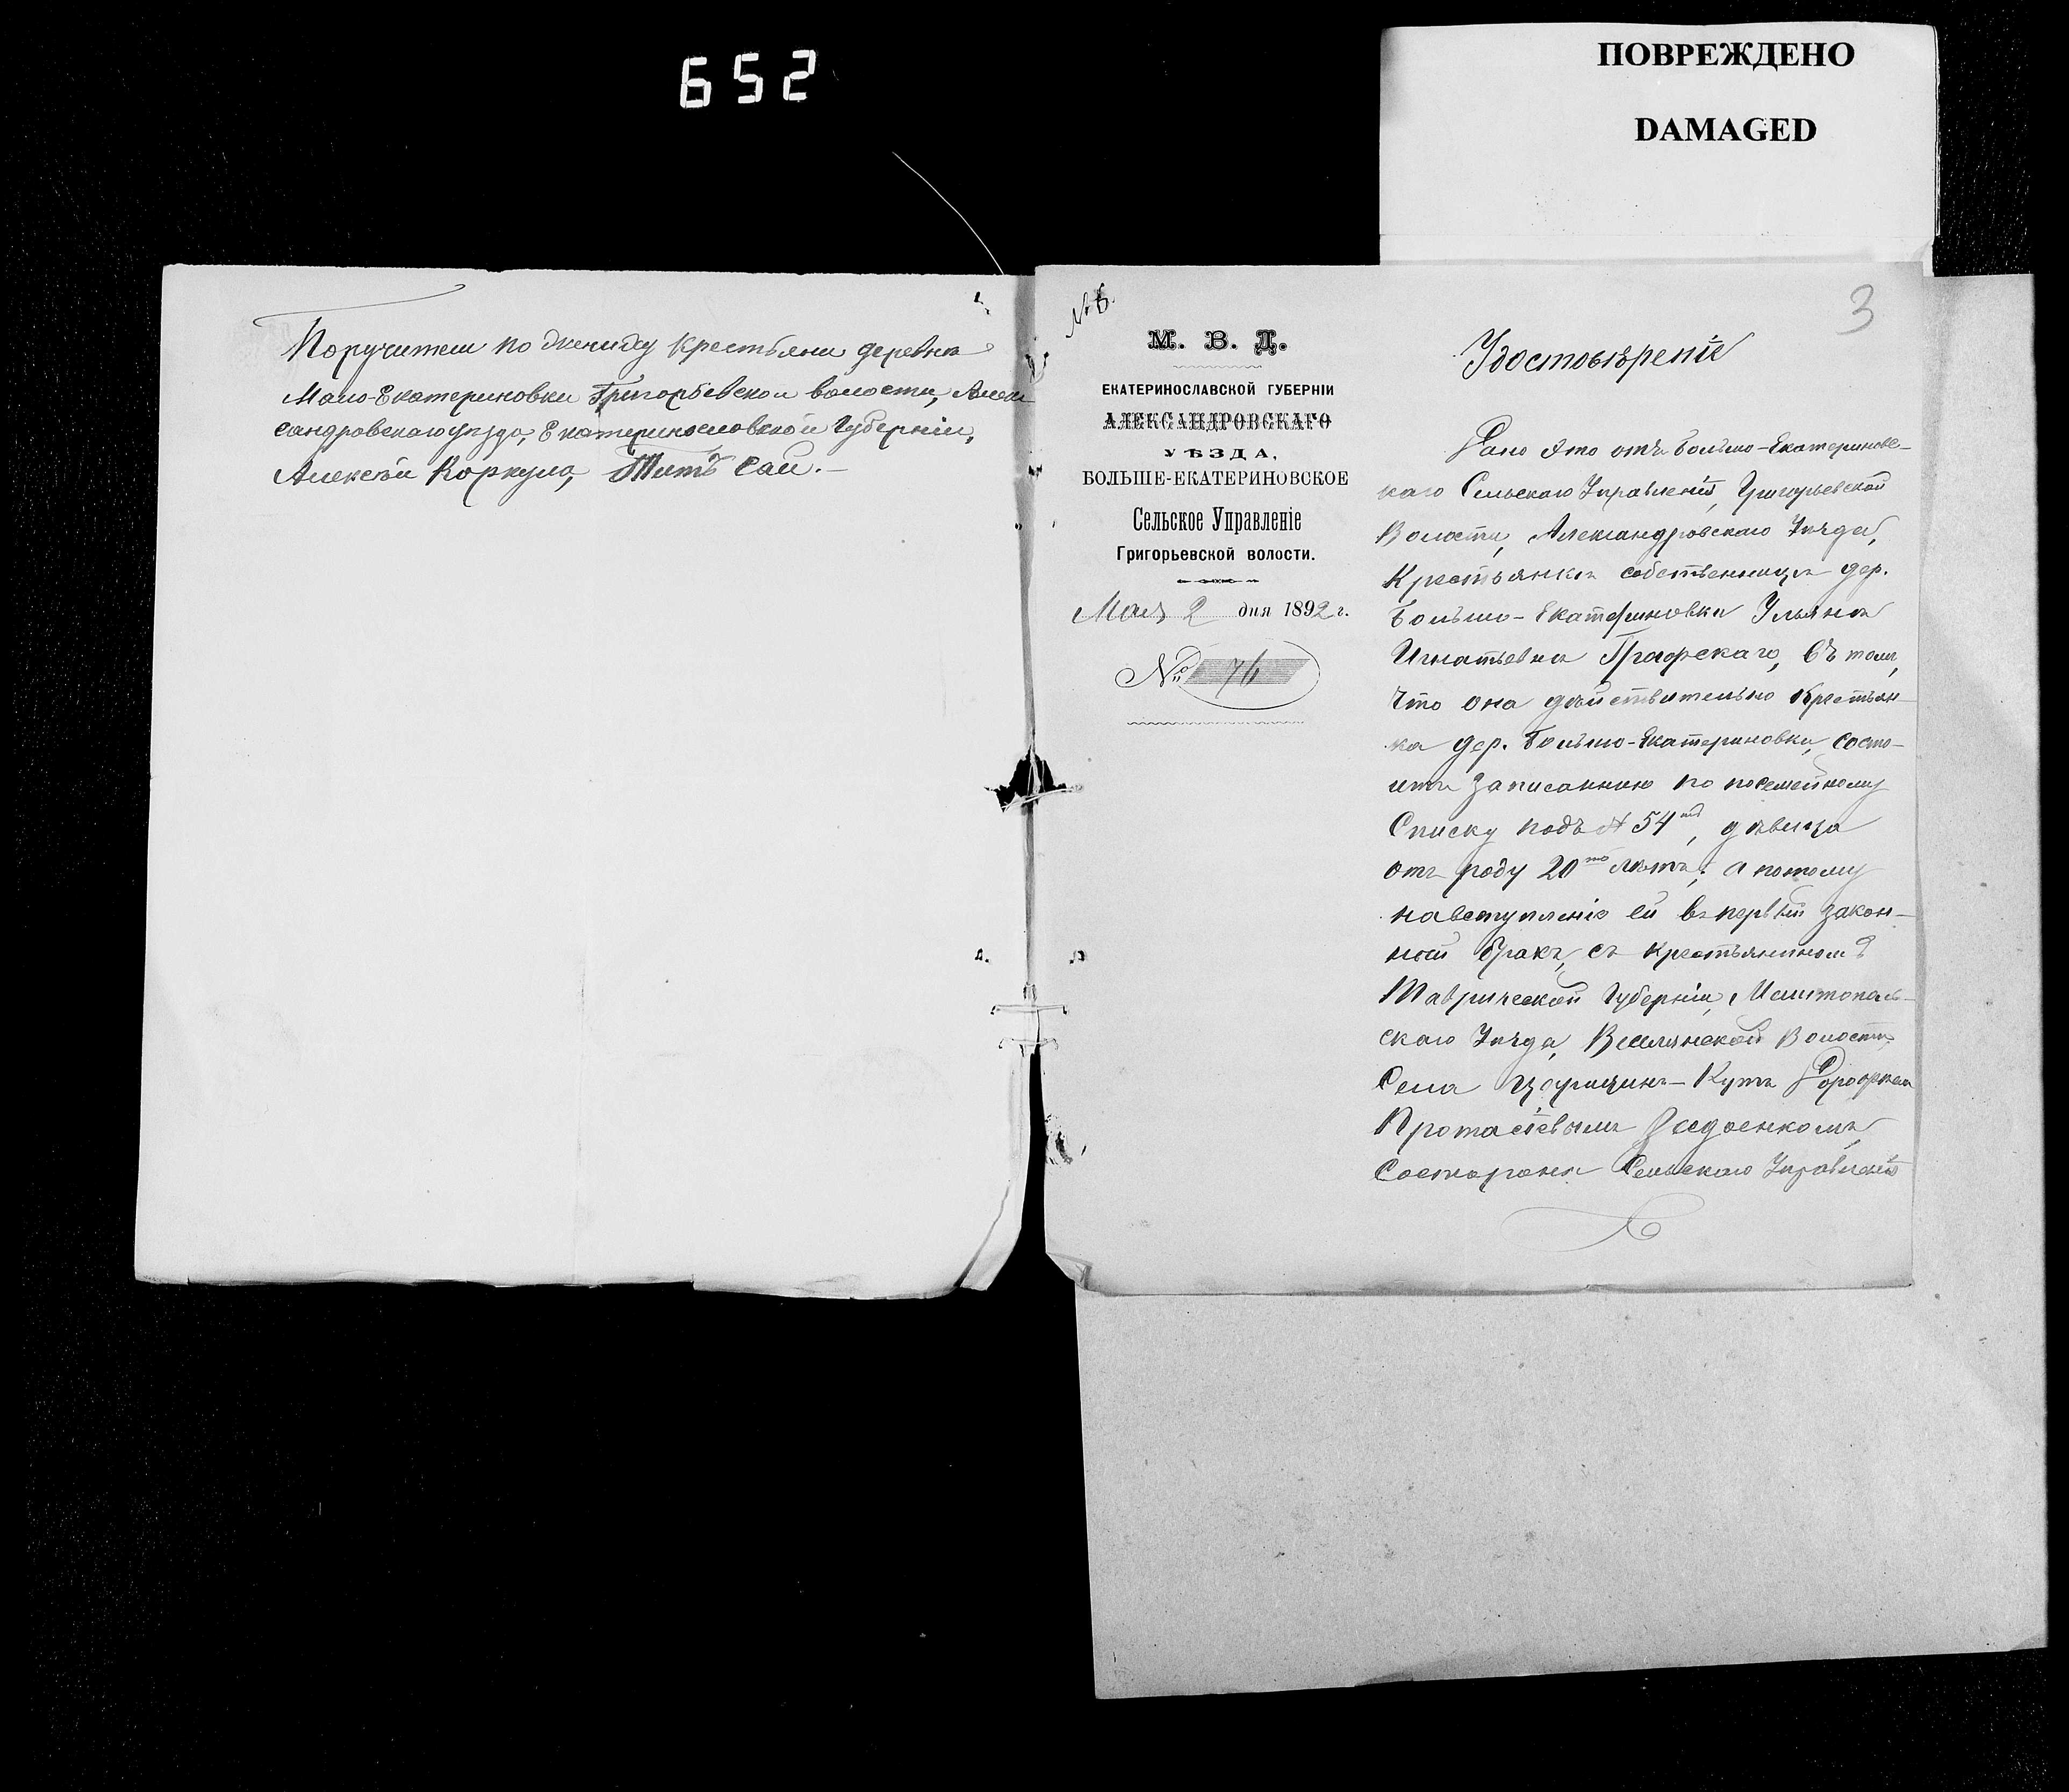 652
ПОВРЕЖДЕНО
DAMAGED
Поручители по жениху крестьяни деревни
Мало-Екатериновки Григорьевской волости, Алек
сандровскаго уѣзда, Екатеринославской Губерніи,
Алексѣй Коркула, Титъ Сай.-
№ 6.
М. В. Д.
ЕКАТЕРИНОСЛАВСКОЙ ГУБЕРНІИ
АЛЕКСАНДРОВСКАГО
УѢЗДА,
БОЛЬШЕ-ЕКАТЕРИНОВСКОЕ
Сельское Управленіе
Григорьевской волости.
Мая 2 дня 1892 г.
№ 76
3
Удостовѣреніе
Дано это отъ Большо-Екатериновс-
каго Сельскаго Управленія, Григорьевской
Волости, Александровскаго Уѣзда,
Крестьянкѣ собственницѣ дер.
Больше-Екатериновки Ульяна
Игнатьевна Графскаго, въ томъ,
что она дѣйствительно Крестьян-
ка дер. Больше-Екатериновки, состо-
итъ записанною по посемейному
Списку подъ № 54, дѣвица
отъ роду 20 лѣтъ; а потому
навступленіе ей въ первый закон-
ный бракъ, съ крестьяниномъ
Таврической Губерніи, Мелитополь-
скаго Уѣзда, Волости
Села Царицинъ-Кутъ
Протасіевымъ
Состороны Сельскаго Управленія